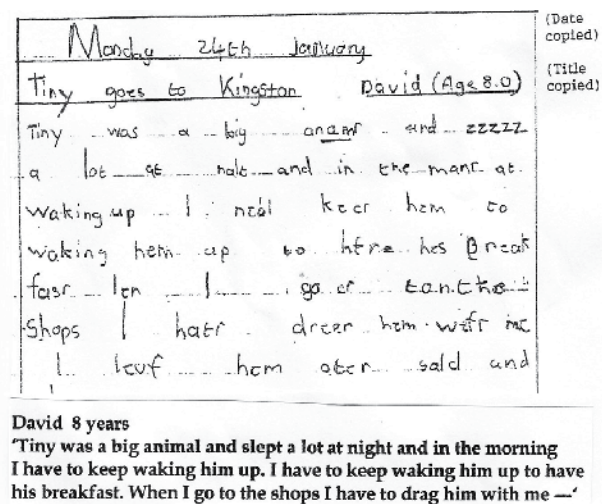 Monday 24th January
(Date copied)
Tiny goes to Kingston David (Age 8.0)
(Title copied)
Tiny was a big anamr and zzzzz
a lot at nalt and in the manr at
waking up I keer hem to
waking hem up to hfre hes Break
fasr len I go er tanthe
Shops I hatr dreer hem wefr me
I leuf hem ater sald and
David 8 years
'Tiny was a big animal and slept a lot at night and in the morning
I have to keep waking him up. I have to keep waking him up to have
his breakfast. When I go to the shops I have to drag him with me —'